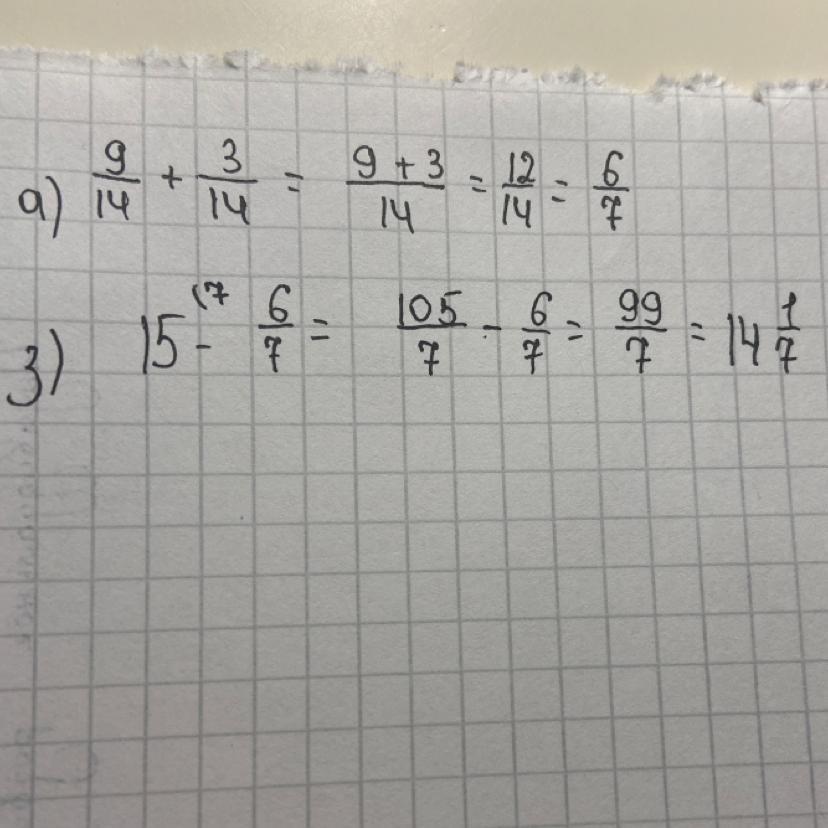 а) 9/14 + 3/14 = (9 + 3)/14 = 12/14 = 6/7
3) 15 (7 - 6/7 = 105/7 - 6/7 = 99/7 = 14 1/7